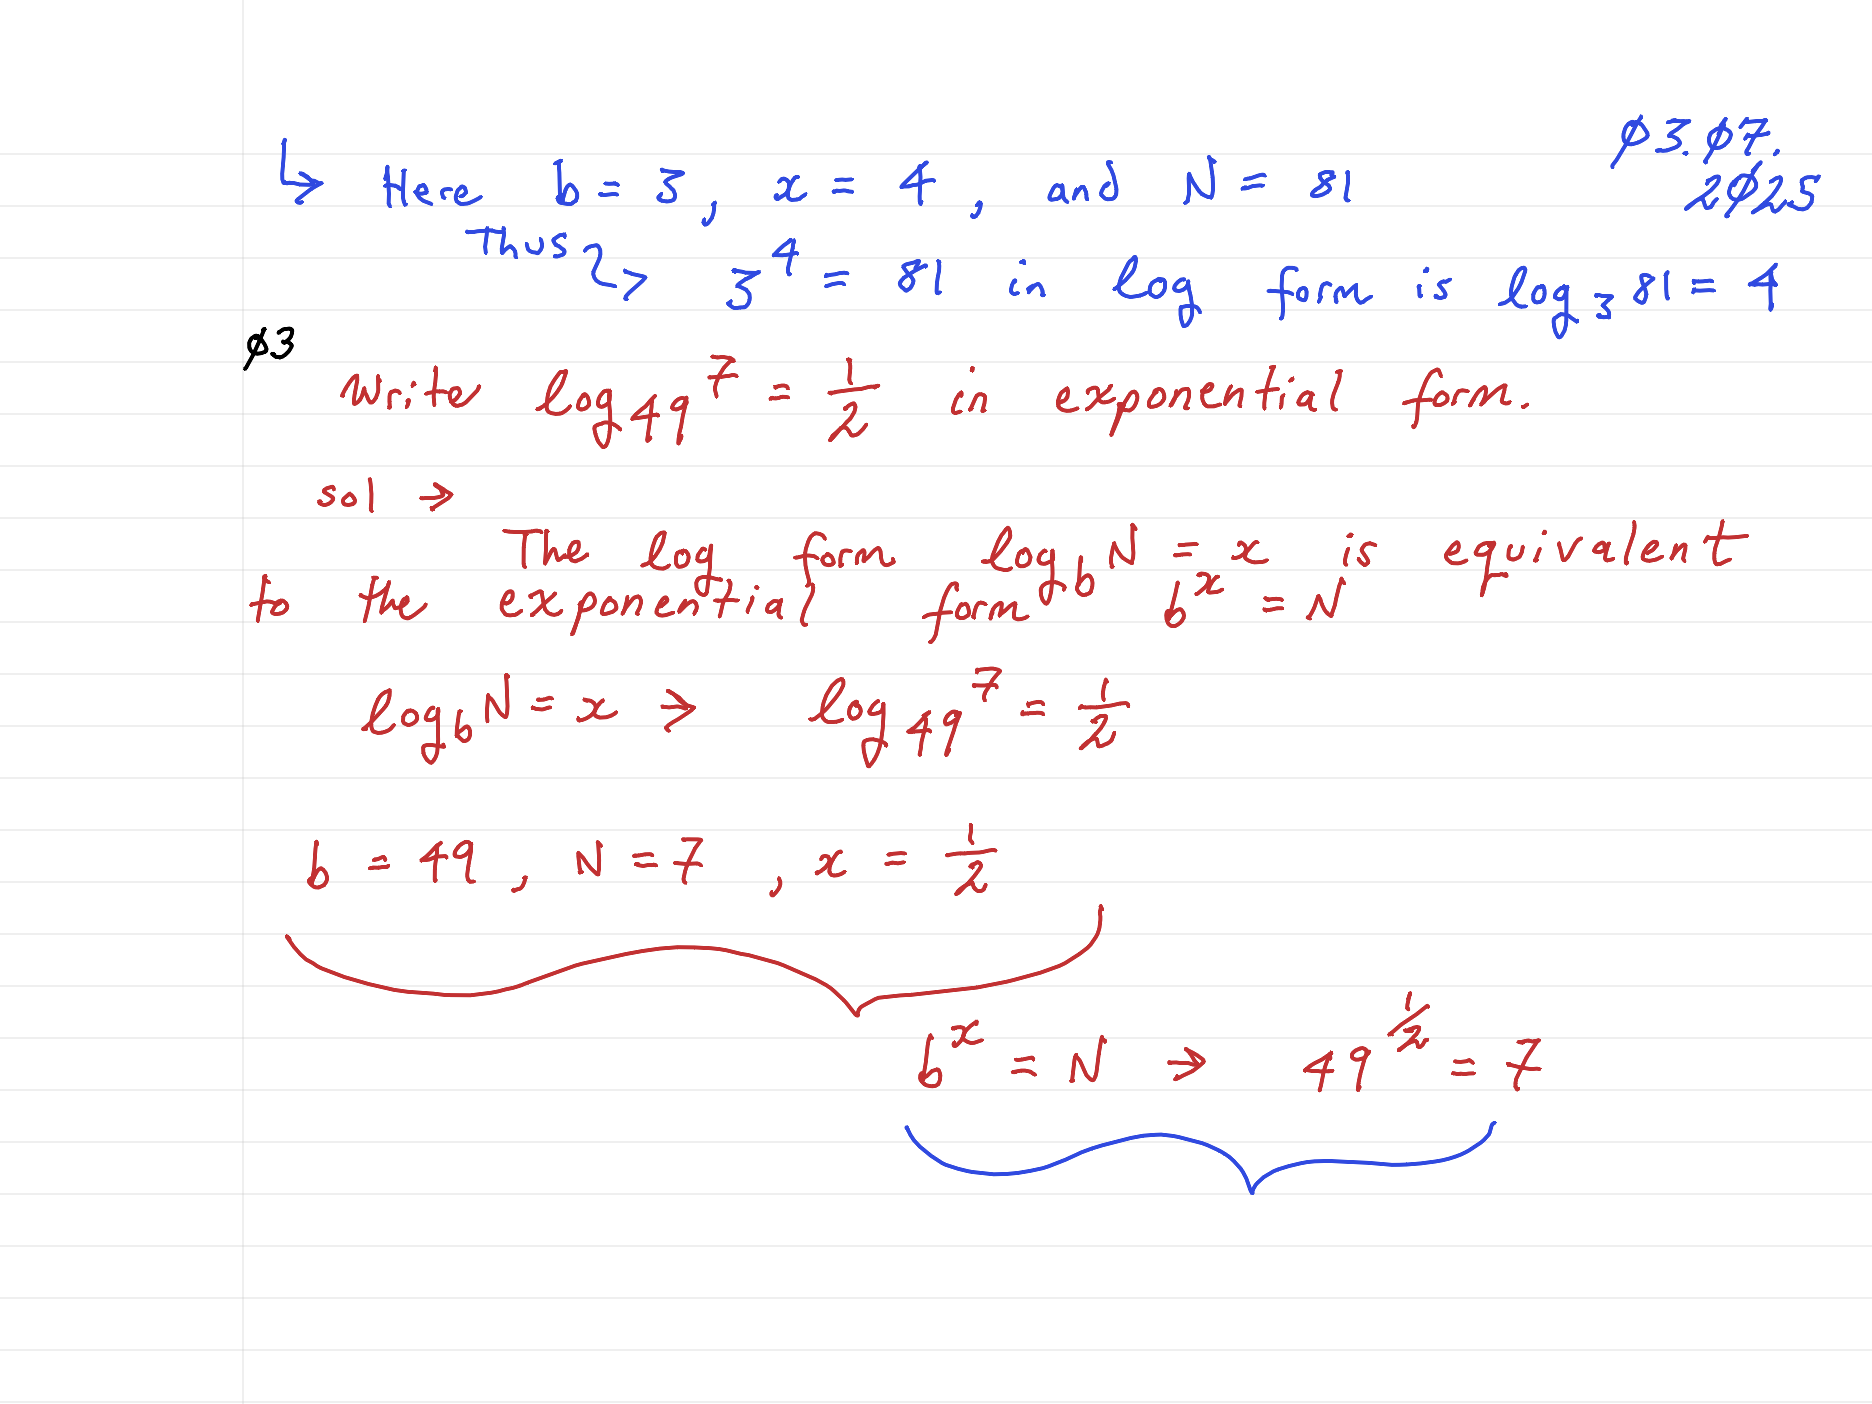 ↳ Here b = 3, x = 4, and N = 81
Ø3.Ø7.
2Ø25
Thus ↝ 3⁴ = 81 in log form is log₃ 81 = 4
Ø3
Write log₄₉ 7 = 1/2 in exponential form.
sol →
The log form log_b N = x is equivalent
to the exponential form b^x = N
log_b N = x → log₄₉ 7 = 1/2
b = 49, N = 7, x = 1/2
b^x = N → 49^(1/2) = 7